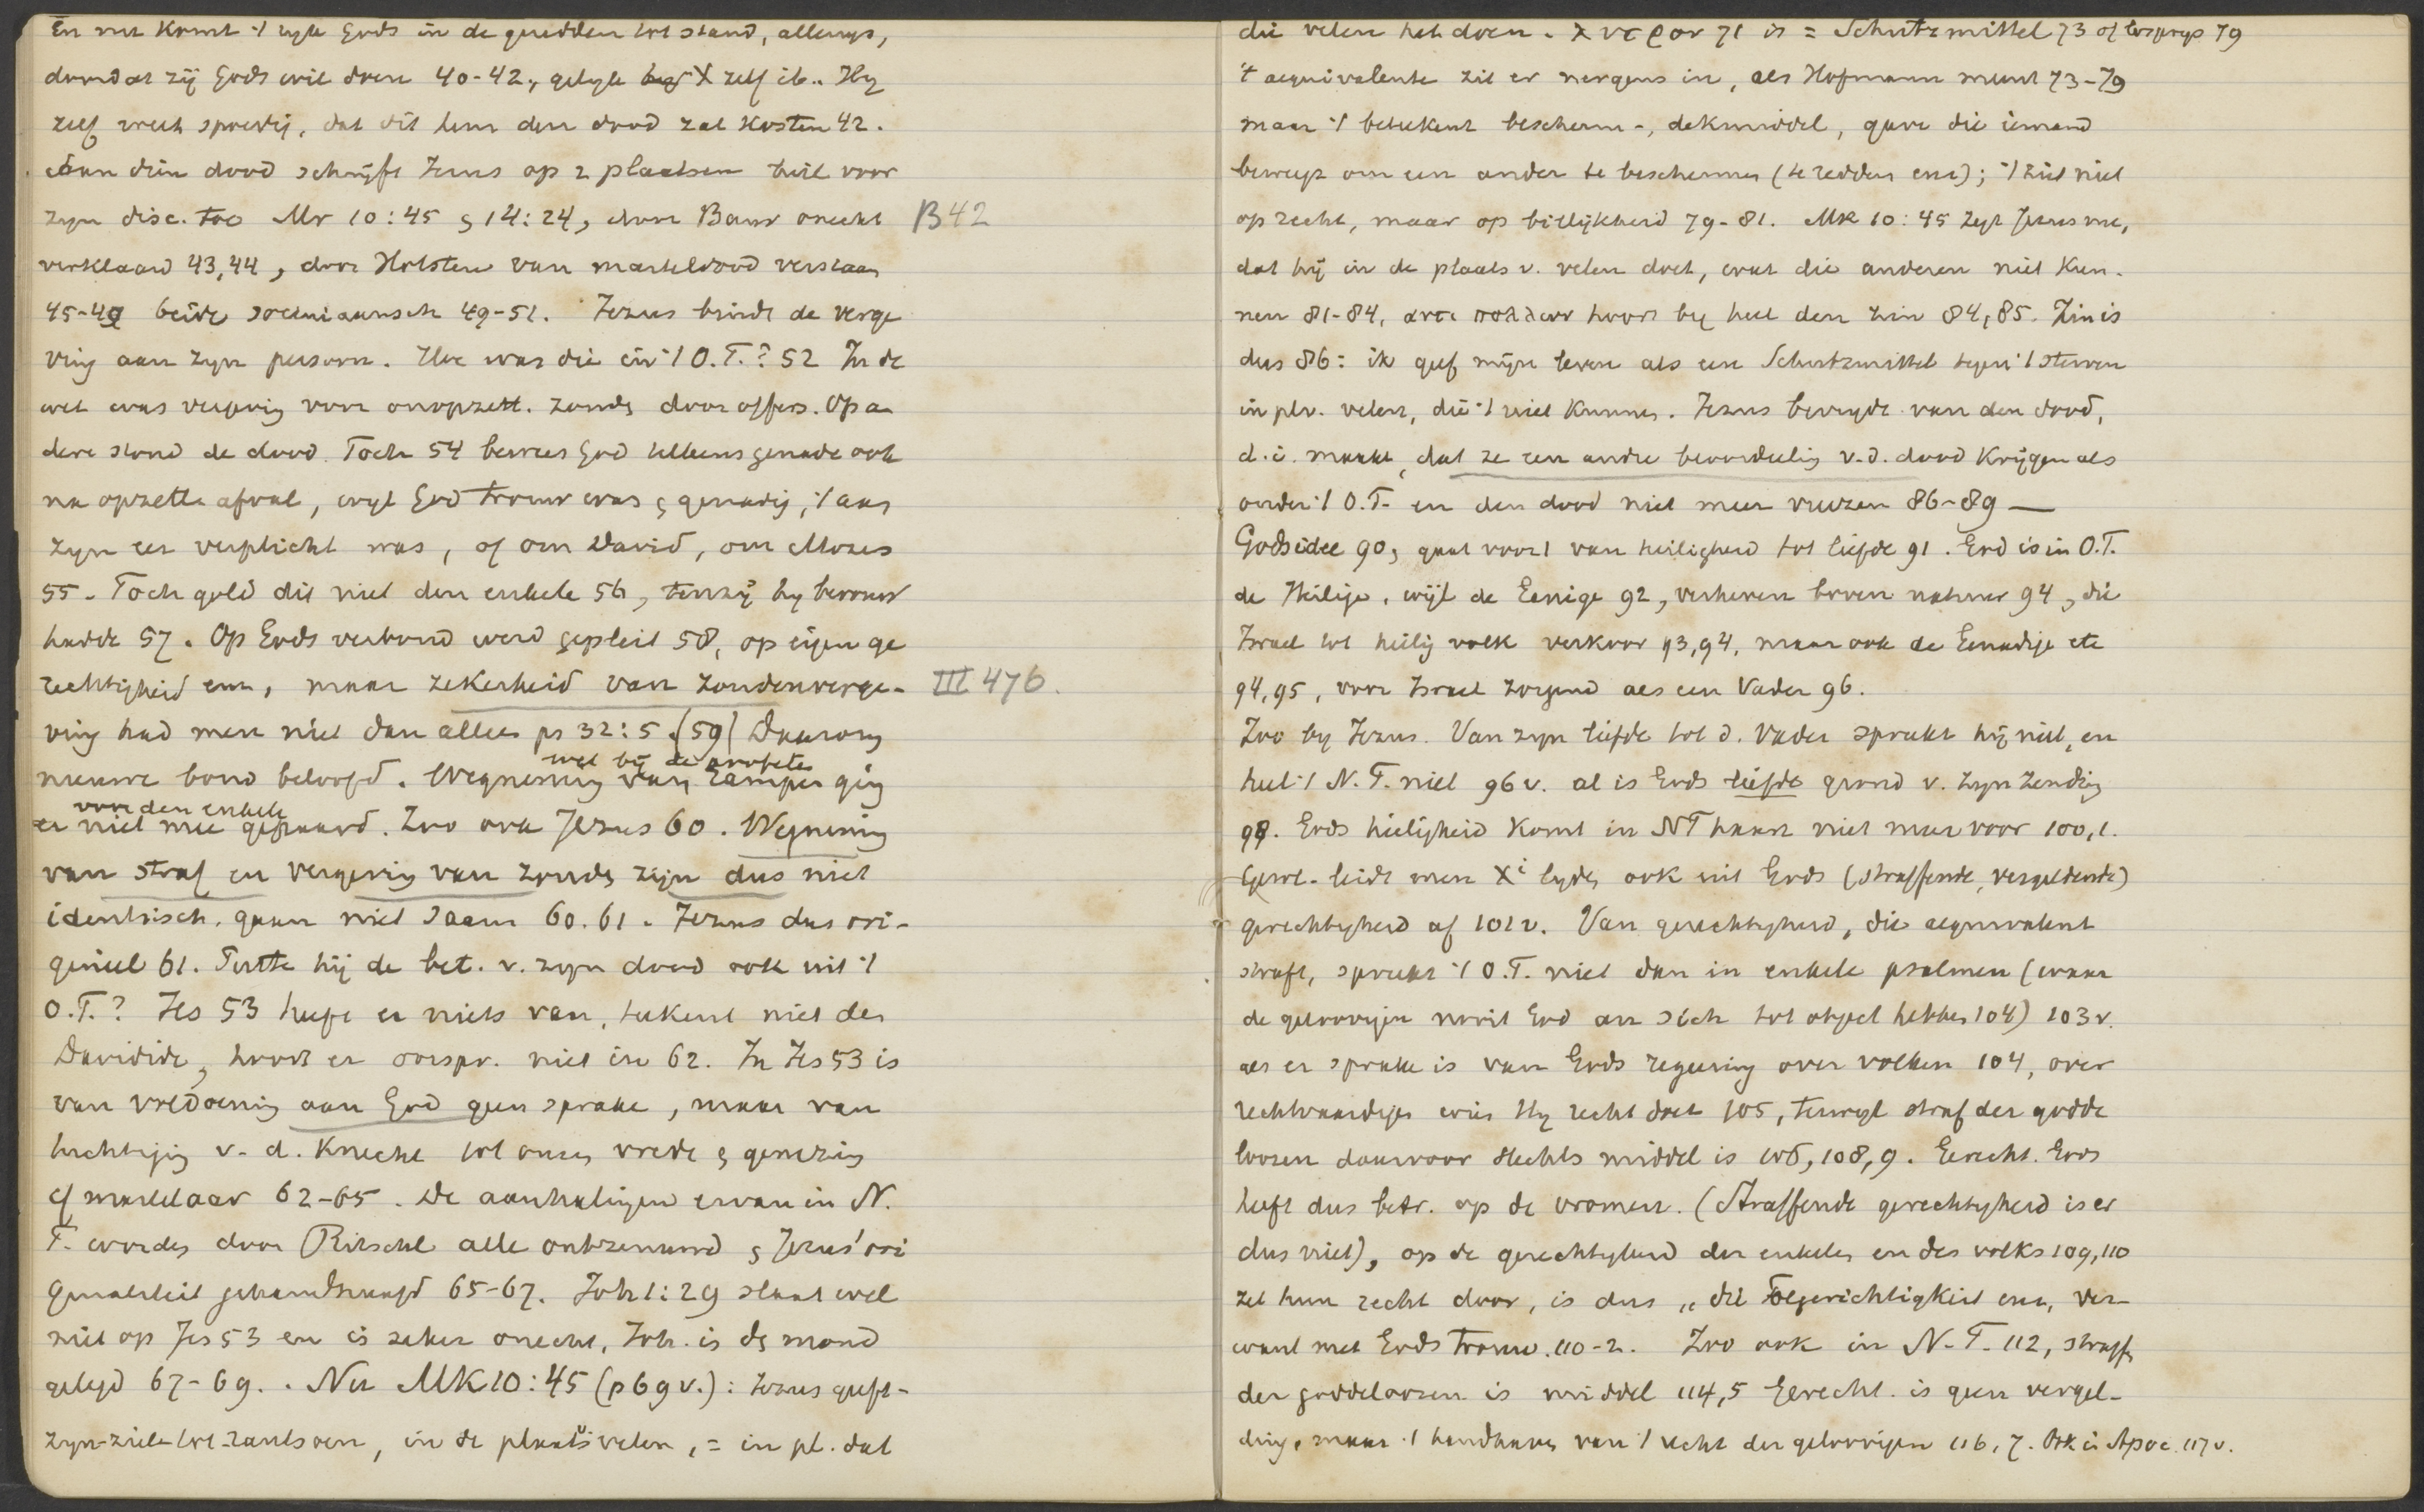 En nu komt 't ryk Gods in de geredden tot stand, allengs,
doordat zij Gods wil doen 40-42, gelyk X zelf ib.. Hy
zelf weet spoedig, dat dit hem den dood zal kosten 42.
Aan dien dood schrijft Jezus op 2 plaatsen heil voor
zyn disc. toe Mr 10:45 & 14:24, door Baur onecht B 42
verklaard 43,44, door Holsten van marteldood verstaan
45-49 beide sociniaansch 49-51. Jezus bindt de verge
ving aan zyn persoon. Hoe was die in 't O.T.? 52 In de
wet was vergeving voor onopzett. zonds door offers. Op an
dere stond de dood. Toch 54 bewees God telkens genade ook
na opzettel. afval, wyl God trouw was & genadig, 't aan
zyn eer verplicht was, of om David, om Mozes
55. Toch gold dit niet den enkele 56, tenzij hy berouw
hadde 57. Op Gods verbond werd gepleit 58, op eigen ge
rechtigheid enz, maar zekerheid van zondenverge- III 476.
ving had men niet dan alleen ps 32:5 (59) Daarom
nieuwe bond beloofd. Wegneming van rampen ging
wel bij de profeten
voor den enkele
er niet mee gepaard. Zoo ook Jezus 60. Wegneming
van straf en vergeving van zonds zijn dus niet
identisch, gaan niet saam 60.61. Jezus dus ori-
gineel 61. Putte hij de bet. v. zyn dood ook uit 't
O.T.? Jes 53 heeft er niets van, teekent niet den
Davidide, hoort er oorspr. niet in 62. In Jes 53 is
van voldoening aan God geen sprake, maar van
tuchtiging v. d. Knecht tot onzen vrede & genezing
cf martelaar 62-65. De aanhalingen ervan in N.
T. worden door Ritschl alle ontzenuwd & Jezus' ori
ginaliteit gehandhaafd 65-67. Joh 1:29 slaat wel
niet op Jes 53 en is zeker onecht, Joh. in ds mond
gelegd 67-69. . Nu MK 10:45 (p 69 v.): Jezus geeft
zyn ziel tot rantsoen, in de plaats v velen, = in pl. dat
die velen het doen. λυτρον 71 is = Schutzmittel 73 of losprys 79
't aequivalente zit er nergens in, als Hofmann meent 73-79
maar 't beteekent bescherm-, dekmiddel, gave die iemand
beweegt om een ander te beschermen (te redden enz); 't ziet niet
op recht, maar op billijkheid 79-81. Mk 10:45 zegt Jezus nu,
dat hij in de plaats v. velen doet, wat die anderen niet kun-
nen 81-84, αντι πολλων hoort by heel den zin 84,85. Zin is
dus 86: ik geef mijn leven als een Schutzmittel tegen 't sterven
in plv. velen, die 't niet kunnen. Jezus bevrydt van den dood,
d.i. maakt, dat ze een andre beoordeeling v.d. dood krijgen als
onder 't O.T. en den dood niet meer vreezen 86-89 —
Godsidee 90, gaat voort van heiligheid tot liefde 91. God is in O.T.
de Heilige, wijl de Eenige 92, verheven boven natuur 94, die
Israel tot heilig volk verkoor 93,94, maar ook de Genadige etc
94,95, voor Israel zorgend als een Vader 96.
Zoo by Jezus. Van zyn liefde tot d. Vader spreekt hij niet, en
heel 't N.T. niet 96 v. al is Gods liefde grond v. zyn zending
98. Gods heiligheid komt in NT haast niet meer voor 100,1.
Gewl. leidt men Xi lyden ook uit Gods (straffende, vergeldende)
gerechtigheid af 101 v. Van gerechtigheid, die aequivalent
straft, spreekt 't O.T. niet dan in enkele psalmen (waar
de geloovigen nooit God an sich tot object hebben 104) 103 v.
als er sprake is van Gods regeering over volken 104, over
rechtvaardigen wien Hy recht doet 105, terwyl straf der godde
loozen daarvoor slechts middel is 106, 108, 9. Gerecht. Gods
heeft dus betr. op de vromen. (Straffende gerechtigheid is er
dus niet), op de gerechtigheid der enkelen en des volks 109,110
zet hun recht door, is dus „die Folgerichtigkeit enz, ver-
want met Gods trouw. 110-2. Zoo ook in N.T. 112, straff
der goddeloozen is middel 114,5 Gerecht. is geen vergel-
ding, maar 't handhaven van 't recht der geloovigen 116, 7. Ook in Apoc. 117 v.